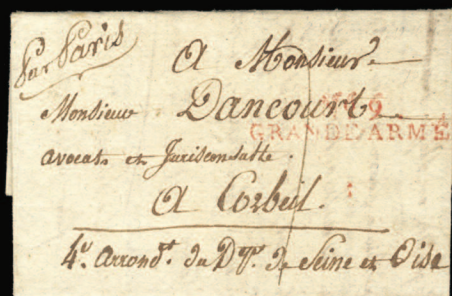 Par Paris
A Monsieur
Monsieur Dancourt
Nº 9
GRANDE ARMÉ
avocat et Jurisconsulte.
A Corbeil.
4e. arrondt. du Dpt. de Seine et Oise